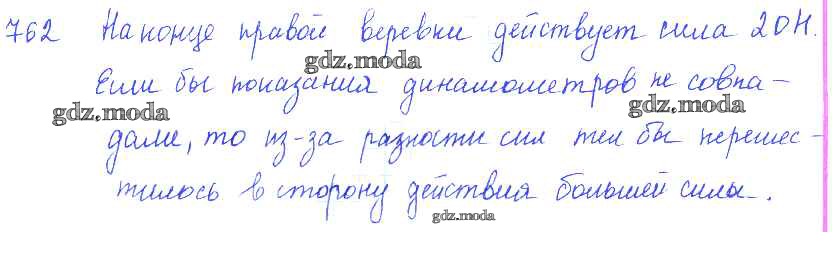 762 На конце правой веревки действует сила 20Н.
gdz.moda
Если бы показания динамометров не совпа-
gdz.moda gdz.moda
дали, то из-за разности сил тел бы перемес-
тилось в сторону действия большей силы.
gdz.moda